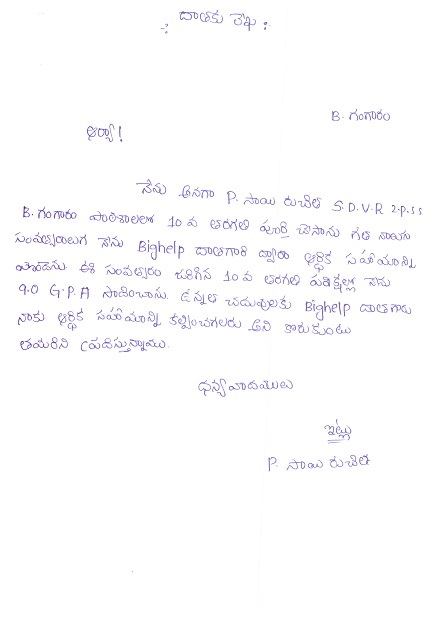 దాతకు లేఖ :
B. గంగారం
ఆర్యా!
నేను అనగా P. సాయి రుచిత S.D.V.R Z.P.S.S
B. గంగారం పాఠశాలలో 10 వ తరగతి పూర్తి చేసాను గత నాలుగు
సంవత్సరాలుగ నేను Bighelp దాతగారి ద్వారా ఆర్థిక సహాయాన్ని
పొందెను ఈ సంవత్సరం జరిగిన 10 వ తరగతి పరీక్షల్లో నేను
9.0 G.P.A సాధించాను. ఉన్నత చదువులకు Bighelp దాతగారు
నాకు ఆర్థిక సహాయాన్ని కల్పించగలరు అని కోరుకుంటు
తమరిని ప్రార్ధిస్తున్నాము.
ధన్యవాదములు
ఇట్లు
P. సాయి రుచిత